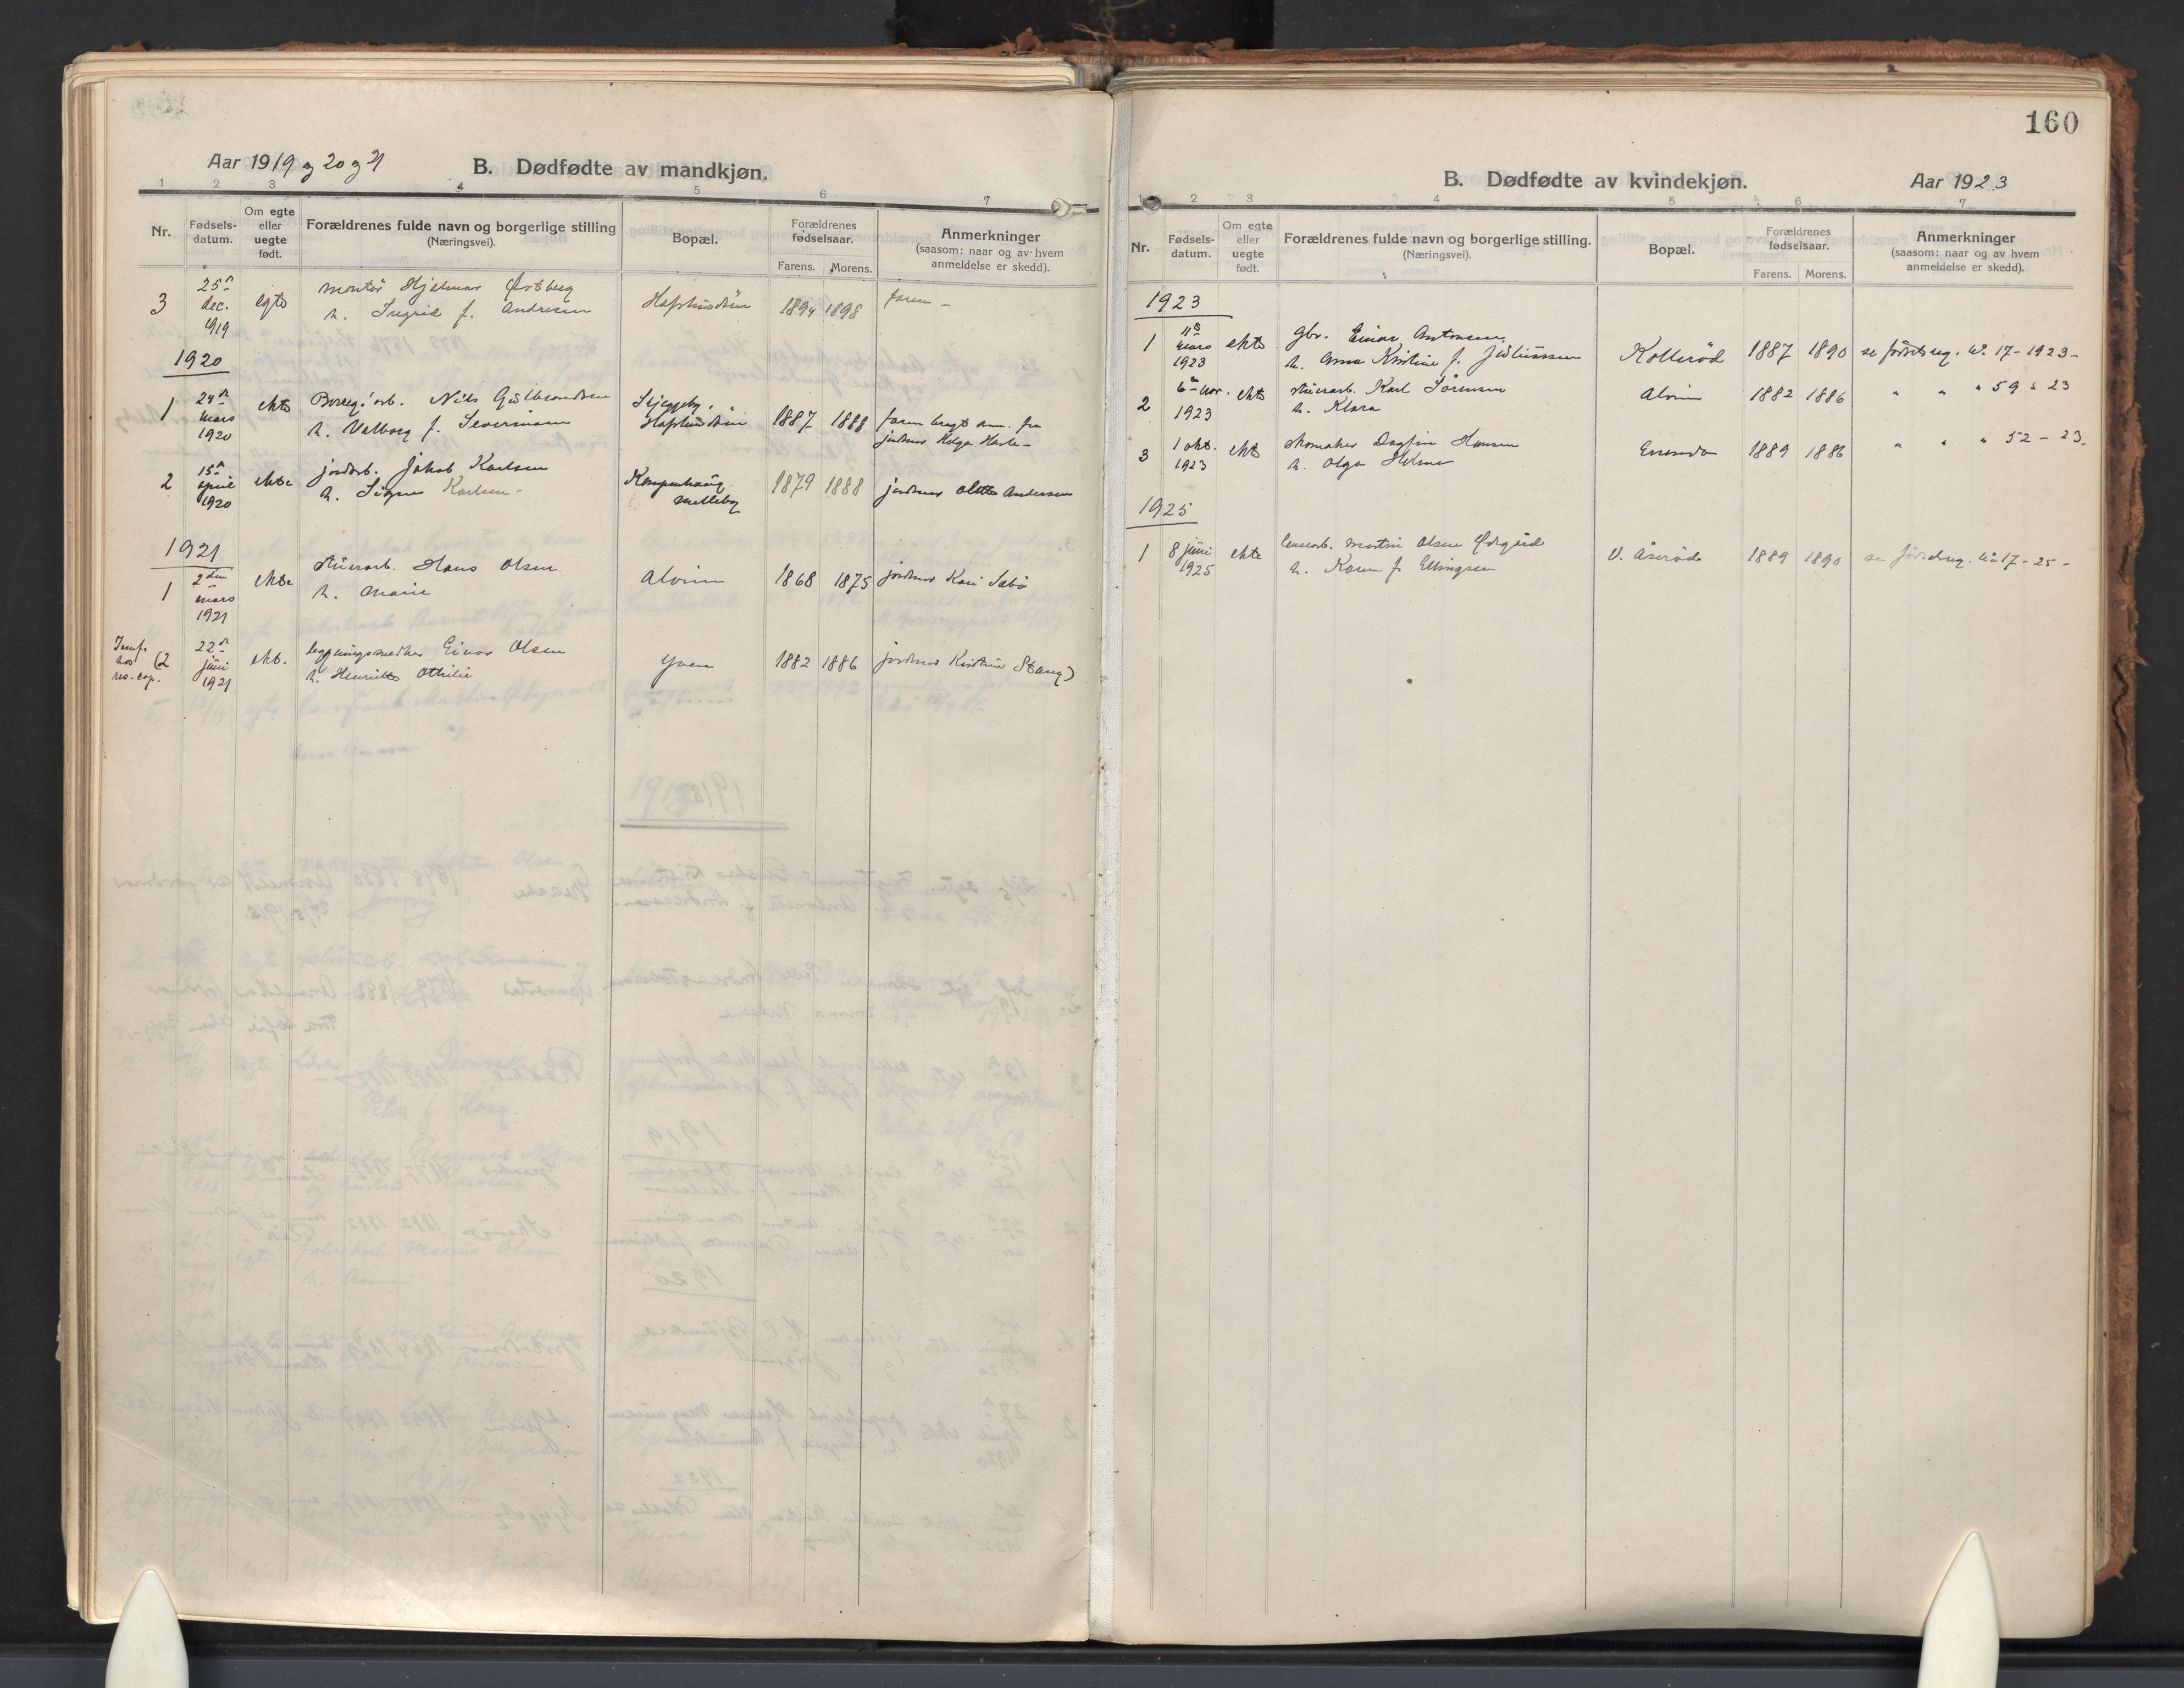 Aar 1919 og 20 og 21
B. Dødfødte av mandkjøn.
1 2 3 4 5 6 7
Nr.
Fødsels-
datum.
Om egte
eller
uegte
født.
Forældrenes fulde navn og borgerlige stilling
(Næringsvei).
Bopæl.
Forældrenes
fødselsaar.
Farens. Morens.
Anmerkninger
(saasom: naar og av hvem
anmeldelse er skedd).
3
25de
dec.
1919
egte
montør Hjelmar Østberg
h. Ingrid f. Andresen
Hafslundsøen
1894 1898
faren -
1920
1
24de
mars
1920
ekte
Borreg. arb. Nils Guldbrandsen
h. Valborg f. Severinsen
Hafslundsøen
1887 1888
faren bragt anm. fra
jordmor Helga Hasle -
2
15de
april
1920
ekte
jordarb. Jakob Karlsen
h. Signe Karlsen
Melleby
1879 1888
jordmor Andersen
1921
1
2den
mars
1921
ekte
stuerarb. Hans Olsen
h. Marie
Alvim
1868 1875
jordmor Kari Sæbø
hos
res. cap.
(2
22de
juni
1921
ekt.
Einar Olsen
h. Henriette Othilie
Yven
1882 1886
jordmor Kristine Stang)
160
B. Dødfødte av kvindekjøn.
Aar 1923
2 3 4 5 6 7
Nr.
Fødsels-
datum.
Om egte
eller
uegte
født.
Forældrenes fulde navn og borgerlige stilling.
(Næringsvei).
Bopæl.
Forældrenes
fødselsaar.
Farens. Morens.
Anmerkninger
(saasom: naar og av hvem
anmeldelse er skedd).
1923
1
11te
mars
1923
ekte
gbr. Einar Antonsen
h. Anna Kristine f. Juliussen
Kollerød
1887 1890
se fødselsreg. no. 17 - 1923 -
2
6te nov.
1923
ekte
stuerarb. Karl Sørensen
h. Klara
Alvim
1882 1886
" " " 59 - 23
3
1 okt.
1923
ekte
skomaker Dagfin Hansen
h. Olga Helene
1889 1886
" " " 52 - 23.
1925
1
8 juni
1925
ekte
lensearb. Martin Olsen Ødegård
h. Karen f. Ellingsen
V. Åserød
1889 1890
se fødselsreg. no 17 - 25 -